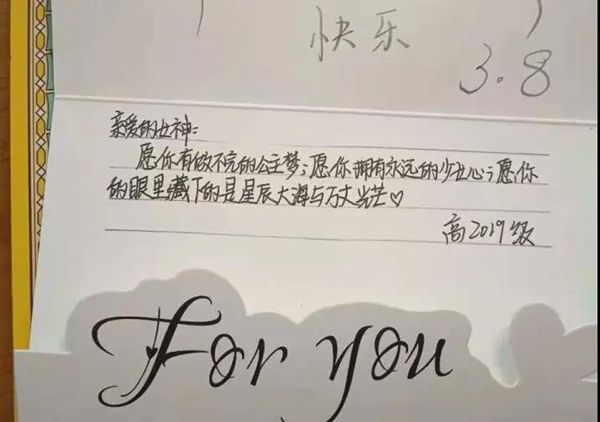 快乐
3.8
亲爱的女神:
愿你有做不完的公主梦;愿你拥有永远的少女心;愿你
的眼里藏下的是星辰大海与万丈光芒♡
高2019级
For you